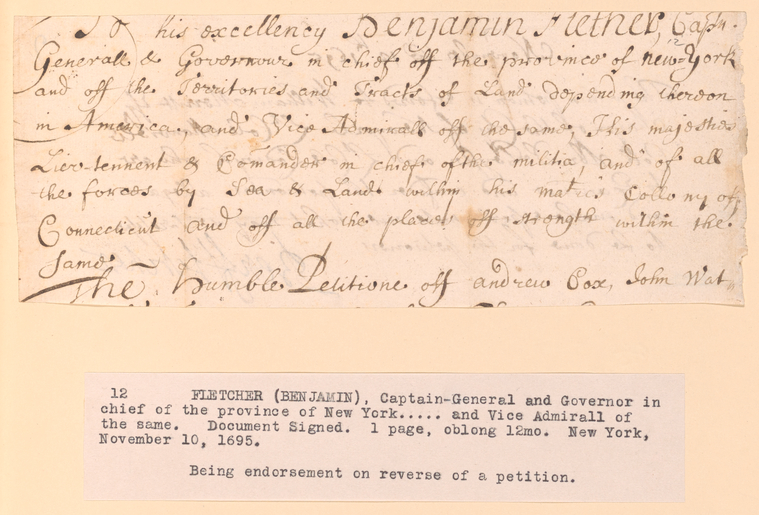 To his excellency Benjamin Flether, Captn.
Generall & Governour in chief off the province of new-York
and off the Territories and Tracts of Land depending thereon
in America, and Vice Admirall off the same, This majesties
Lieu-tennent & Comander in chief of the militia and of all
the forces by Sea & Land within his maties Collony of
Connecticut and off all the places off strength within the
same
The Humble Petitione off andrew Cox, John Wat
12 FLETCHER (BENJAMIN), Captain-General and Governor in
chief of the province of New York..... and Vice Admirall of
the same. Document Signed. 1 page, oblong 12mo. New York,
November 10, 1695.
Being endorsement on reverse of a petition.